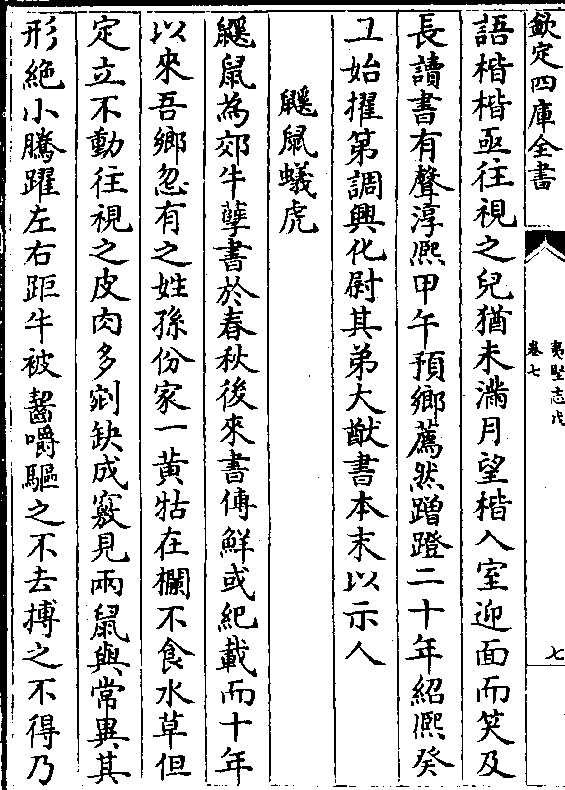 欽定四庫全書
夷堅志戊
卷七
七
語楷楷亟往視之兒猶未滿月望楷入室迎面而笑及
長讀書有聲淳熙甲午預鄉薦然蹭蹬二十年紹熙癸
丑始擢第調興化尉其弟大猷書本末以示人
鼷鼠蟻虎
鼷鼠為郊牛孽書於春秋後來書傳鮮或紀載而十年
以來吾鄉忽有之姓孫份家一黄牯在欄不食水草但
定立不動往視之皮肉多剜缺成竅見兩鼠與常異其
形絶小騰躍左右距牛被齧嚼驅之不去搏之不得乃